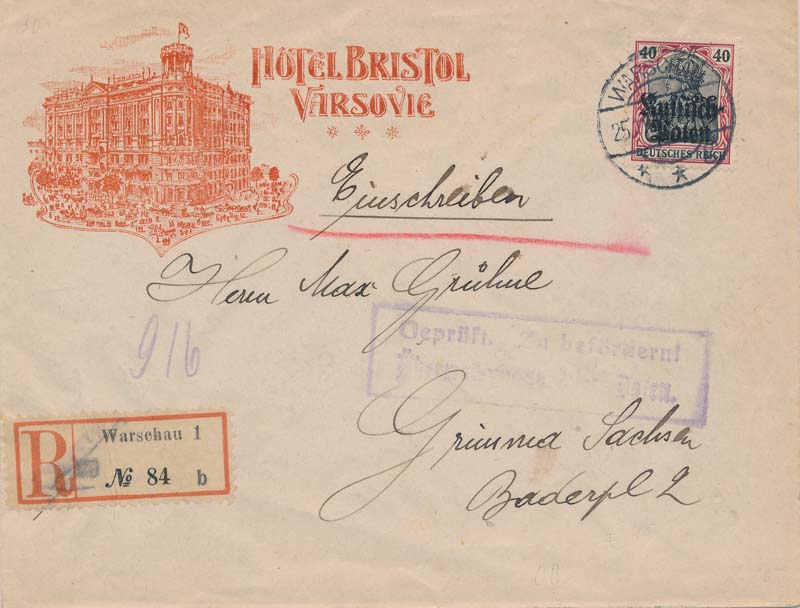 HÔTEL BRISTOL
VARSOVIE
40 40
Russisch
Polen
DEUTSCHES REICH
WARSCHAU
25
Einschreiben
Herrn Max Grühne
916
Geprüft. Zu befördern!
Posen.
R
Warschau 1
№ 84 b
Grimma Sachsen
Baderpl 2